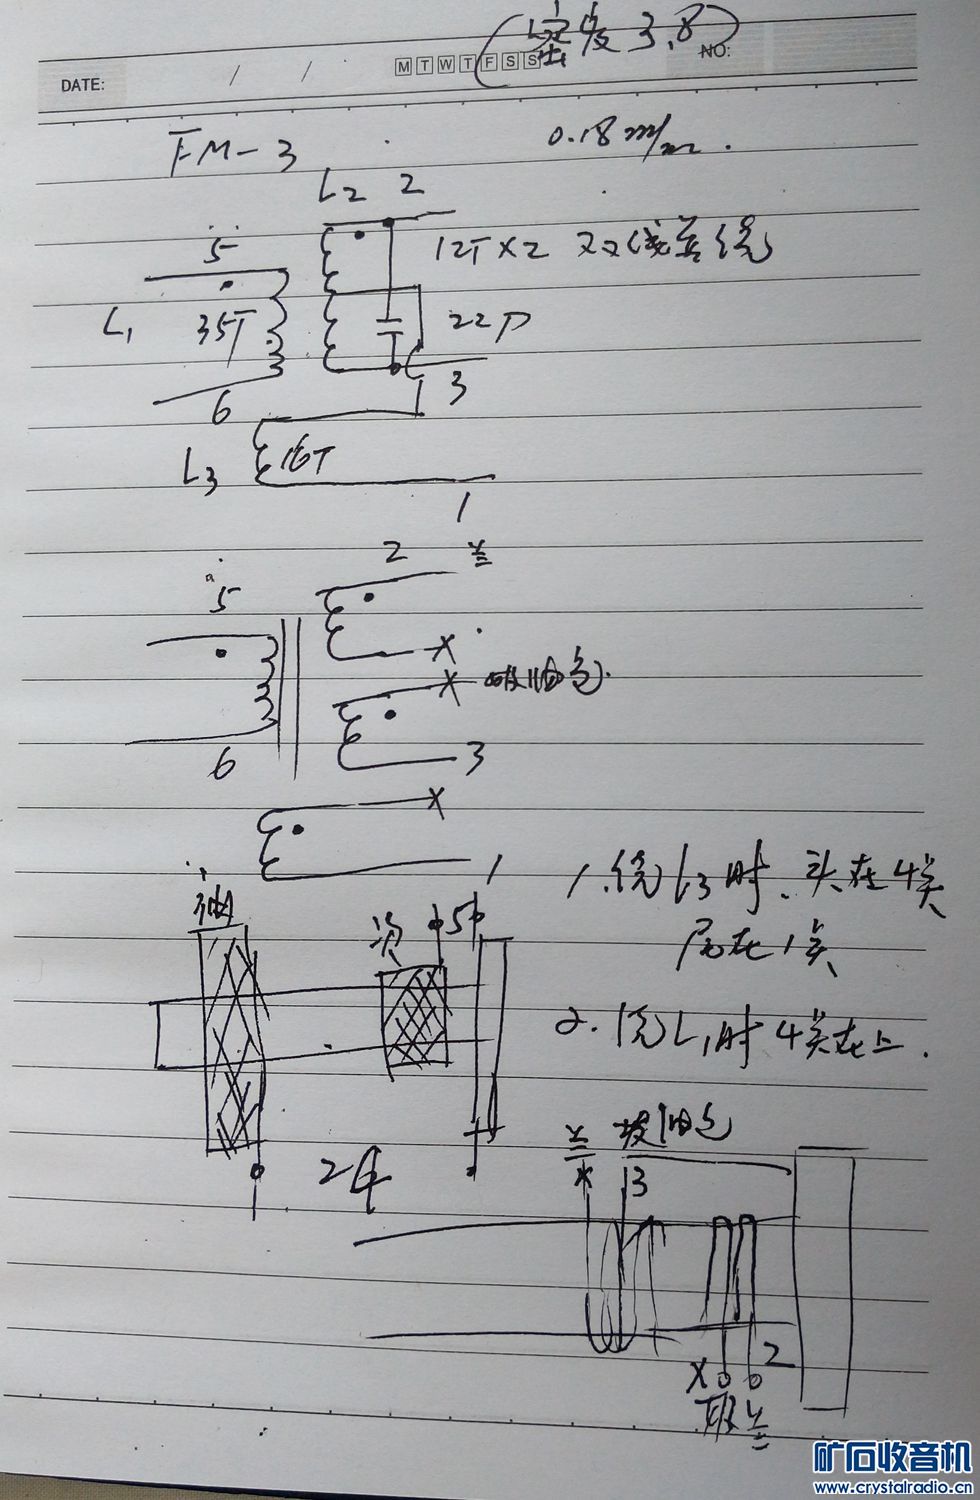 DATE:
M T W T F S S
NO:
FM-3
0.18 m/m.
L2 2
5
12T×2 双线并绕
L1 35T
22P
3
6
L3 16T
1
5
2
兰
X
X
6
3
X
1
1.绕L3时、头在4头
尾在1头
2.绕L1时4头在上.
24
兰
X 3
X 2
兰
矿石收音机
www.crystalradio.cn